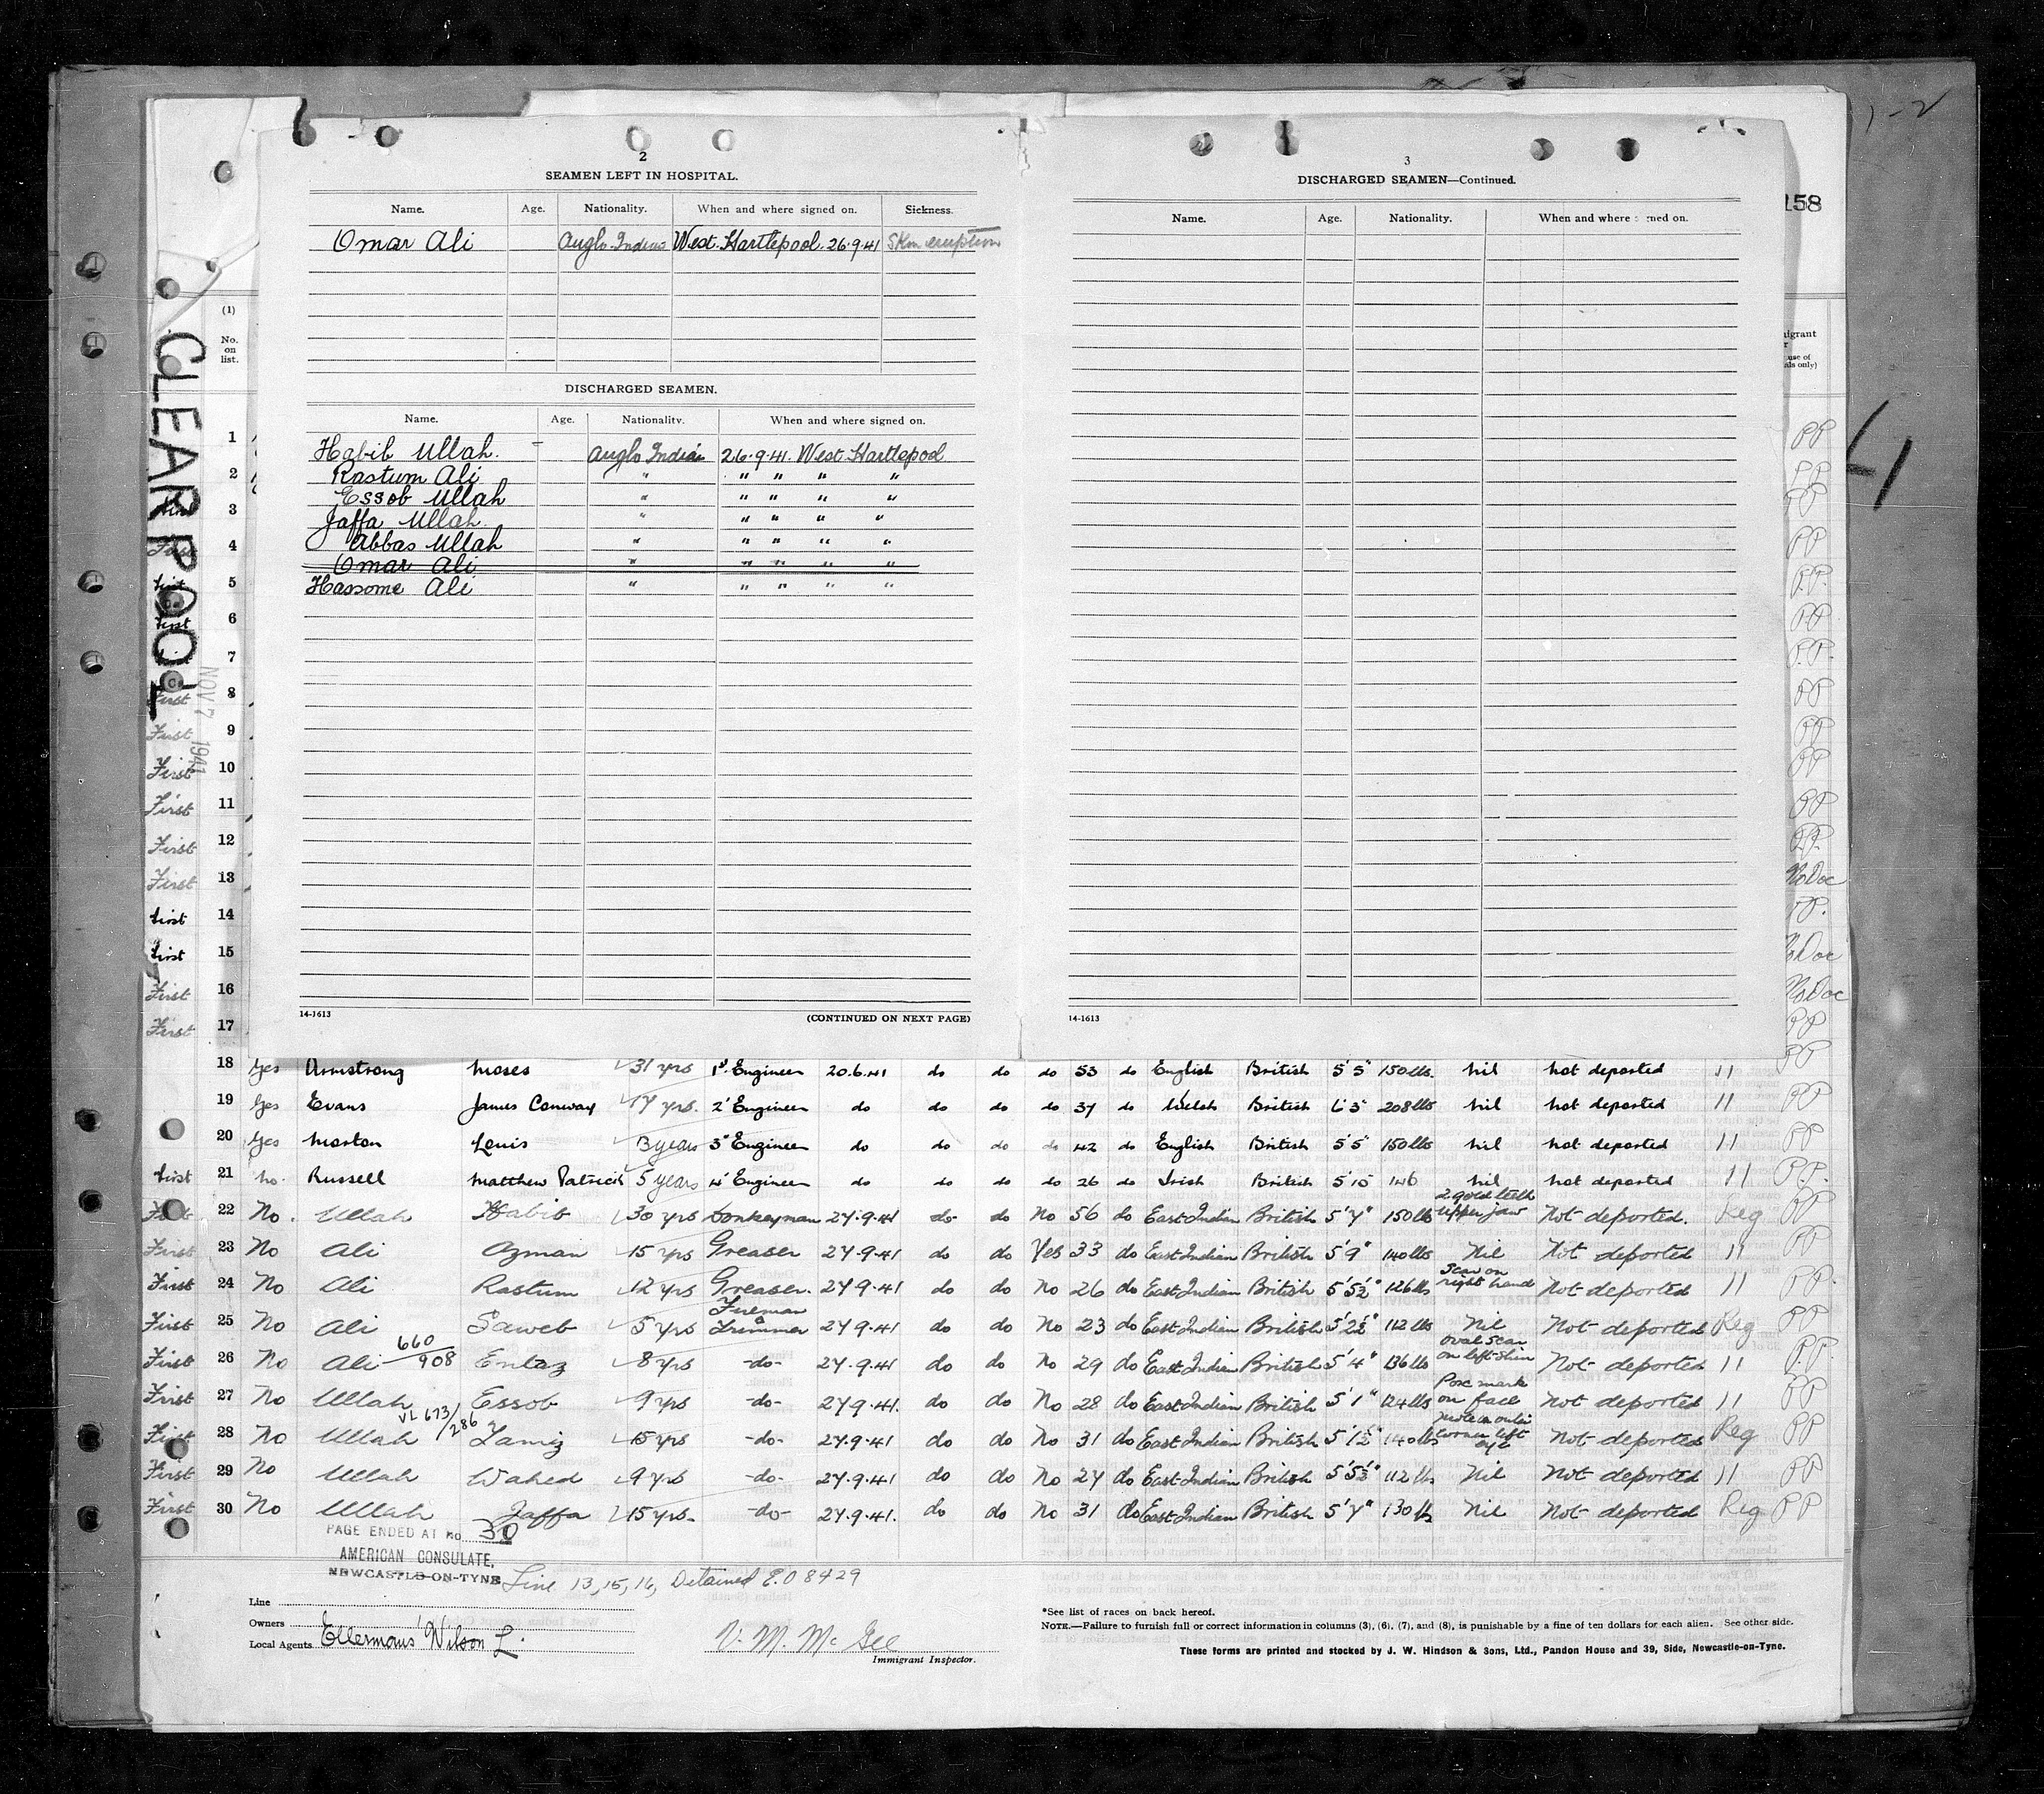 1-2
2
SEAMEN LEFT IN HOSPITAL.
Name. Age. Nationality. When and where signed on. Sickness.
Omar Ali Anglo Indian West Hartlepool 26.9.41 Skin eruption
DISCHARGED SEAMEN.
Name. Age. Nationality. When and where signed on.
Habib Ullah. - Anglo Indian 26.9.41. West Hartlepool
Rastum Ali " " " " "
Essob Ullah " " " " "
Jaffa Ullah " " " " "
Abbas Ullah " " " " "
Omar Ali " " " " "
Hassome Ali " " " " "
14-1613 (CONTINUED ON NEXT PAGE)
3
DISCHARGED SEAMEN—Continued.
Name. Age. Nationality. When and where signed on.
14-1613
158
CLEARPOOL
NOV 7 1941
(1)
No. on list.
1 PP
2 P.P.
3 PP
4 PP
5 P.P.
6 PP
7 P.P.
8 First PP
9 First PP
10 First PP
11 First PP
12 First PP
13 First No Doc
14 First P.P.
15 First No Doc
16 First No Doc
17 First PP
PP
18 Yes Armstrong Moses 31 yrs 1st Engineer 20.6.41 do do do 53 do English British 5'5" 150lbs. nil not deported 11
19 Yes Evans James Conway 17 yrs. 2' Engineer do do do do 37 do Welsh British 6'3" 208lbs nil not deported 11 PP
20 Yes Morton Louis 13 years 3" Engineer do do do do 42 do English British 5'5" 150lbs nil not deported 11 PP
First 21 No. Russell Matthew Patrick 5 years 4' Engineer do do do do 26 do Irish British 5'10 146 nil not deported 11 P.P.
First 22 No. Ullah Habib 30 yrs Donkeyman 27.9.41 do do No 56 do East Indian British 5'7" 150lbs 2 gold teeth upper jaw Not deported. Reg PP
First 23 No Ali Ozman 15 yrs Greaser 27.9.41 do do Yes 33 do East Indian British 5'9" 140lbs Nil Not deported 11 PP
First 24 No Ali Rastum 12 yrs Greaser. 27.9.41 do do No 26 do East Indian British 5'5½" 126lbs Scar on right hand Not deported 11 PP.
First 25 No Ali Saweb 5 yrs Fireman & Trimmer 27.9.41 do do No 23 do East Indian British 5'2½" 112 lbs Nil Not deported Reg PP
First 26 No Ali 660/908 Entaz 8 yrs -do- 27.9.41 do do No 29 do East Indian British 5'4" 136 lbs oval scar on left shin Not deported 11 P.P.
First 27 No Ullah Essob 9 yrs -do- 27.9.41. do do No 28 do East Indian British 5'1" 124lbs Pox mark on face Not deported 11 PP
First 28 No Ullah VL 673/286 Tamiz 15 yrs -do- 27.9.41 do do No 31 do East Indian British 5'1½" 140lbs mole on outer corner left eye Not deported Reg PP
First 29 No Ullah Wahed 9 yrs -do- 27.9.41 do do No 27 do East Indian British 5'5½" 112 lbs Nil Not deported 11 PP
First 30 No Ullah Jaffa 15 yrs. -do- 27.9.41. do do No 31 do East Indian British 5'7" 130 lbs Nil Not deported Reg PP
PAGE ENDED AT No 30
AMERICAN CONSULATE,
NEWCASTLE-ON-TYNE
Line 13, 15, 16, Detained E.O 8429
Line
Owners
Local Agents Ellermans' Wilson L.
V. M. Mc Gee
Immigrant Inspector.
*See list of races on back hereof.
NOTE.—Failure to furnish full or correct information in columns (3), (6), (7), and (8), is punishable by a fine of ten dollars for each alien. See other side.
These forms are printed and stocked by J. W. Hindson & Sons, Ltd., Pandon House and 39, Side, Newcastle-on-Tyne.